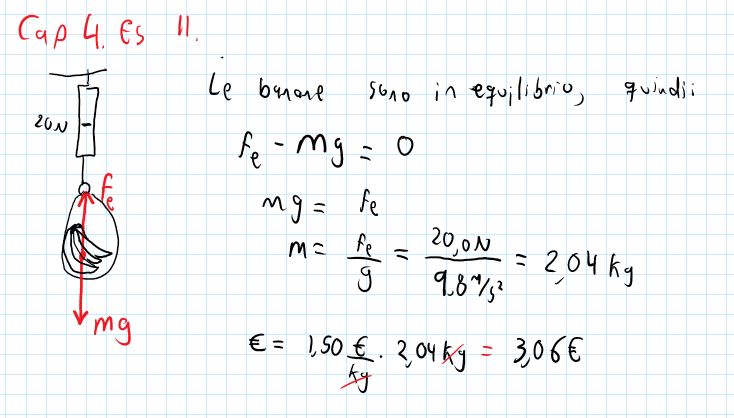 Cap 4. Es 11.
Le banane sono in equilibrio, quindi:
20N
Fe - mg = 0
Fe
mg = Fe
m = Fe/g = 20,0N/9,8 m/s² = 2,04 kg
mg
€ = 1,50 €/kg · 2,04 kg = 3,06 €